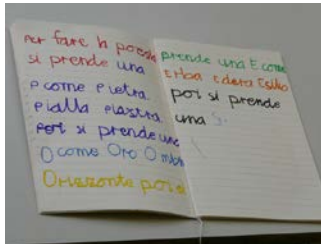 Per fare la poesia
si prende una
P come Pietra
Pialla Piastra
Poi si prende una
O come Oro Ombra
Orizzonte poi si
prende una E come
Erba Edera Esilio
poi si prende
una S.